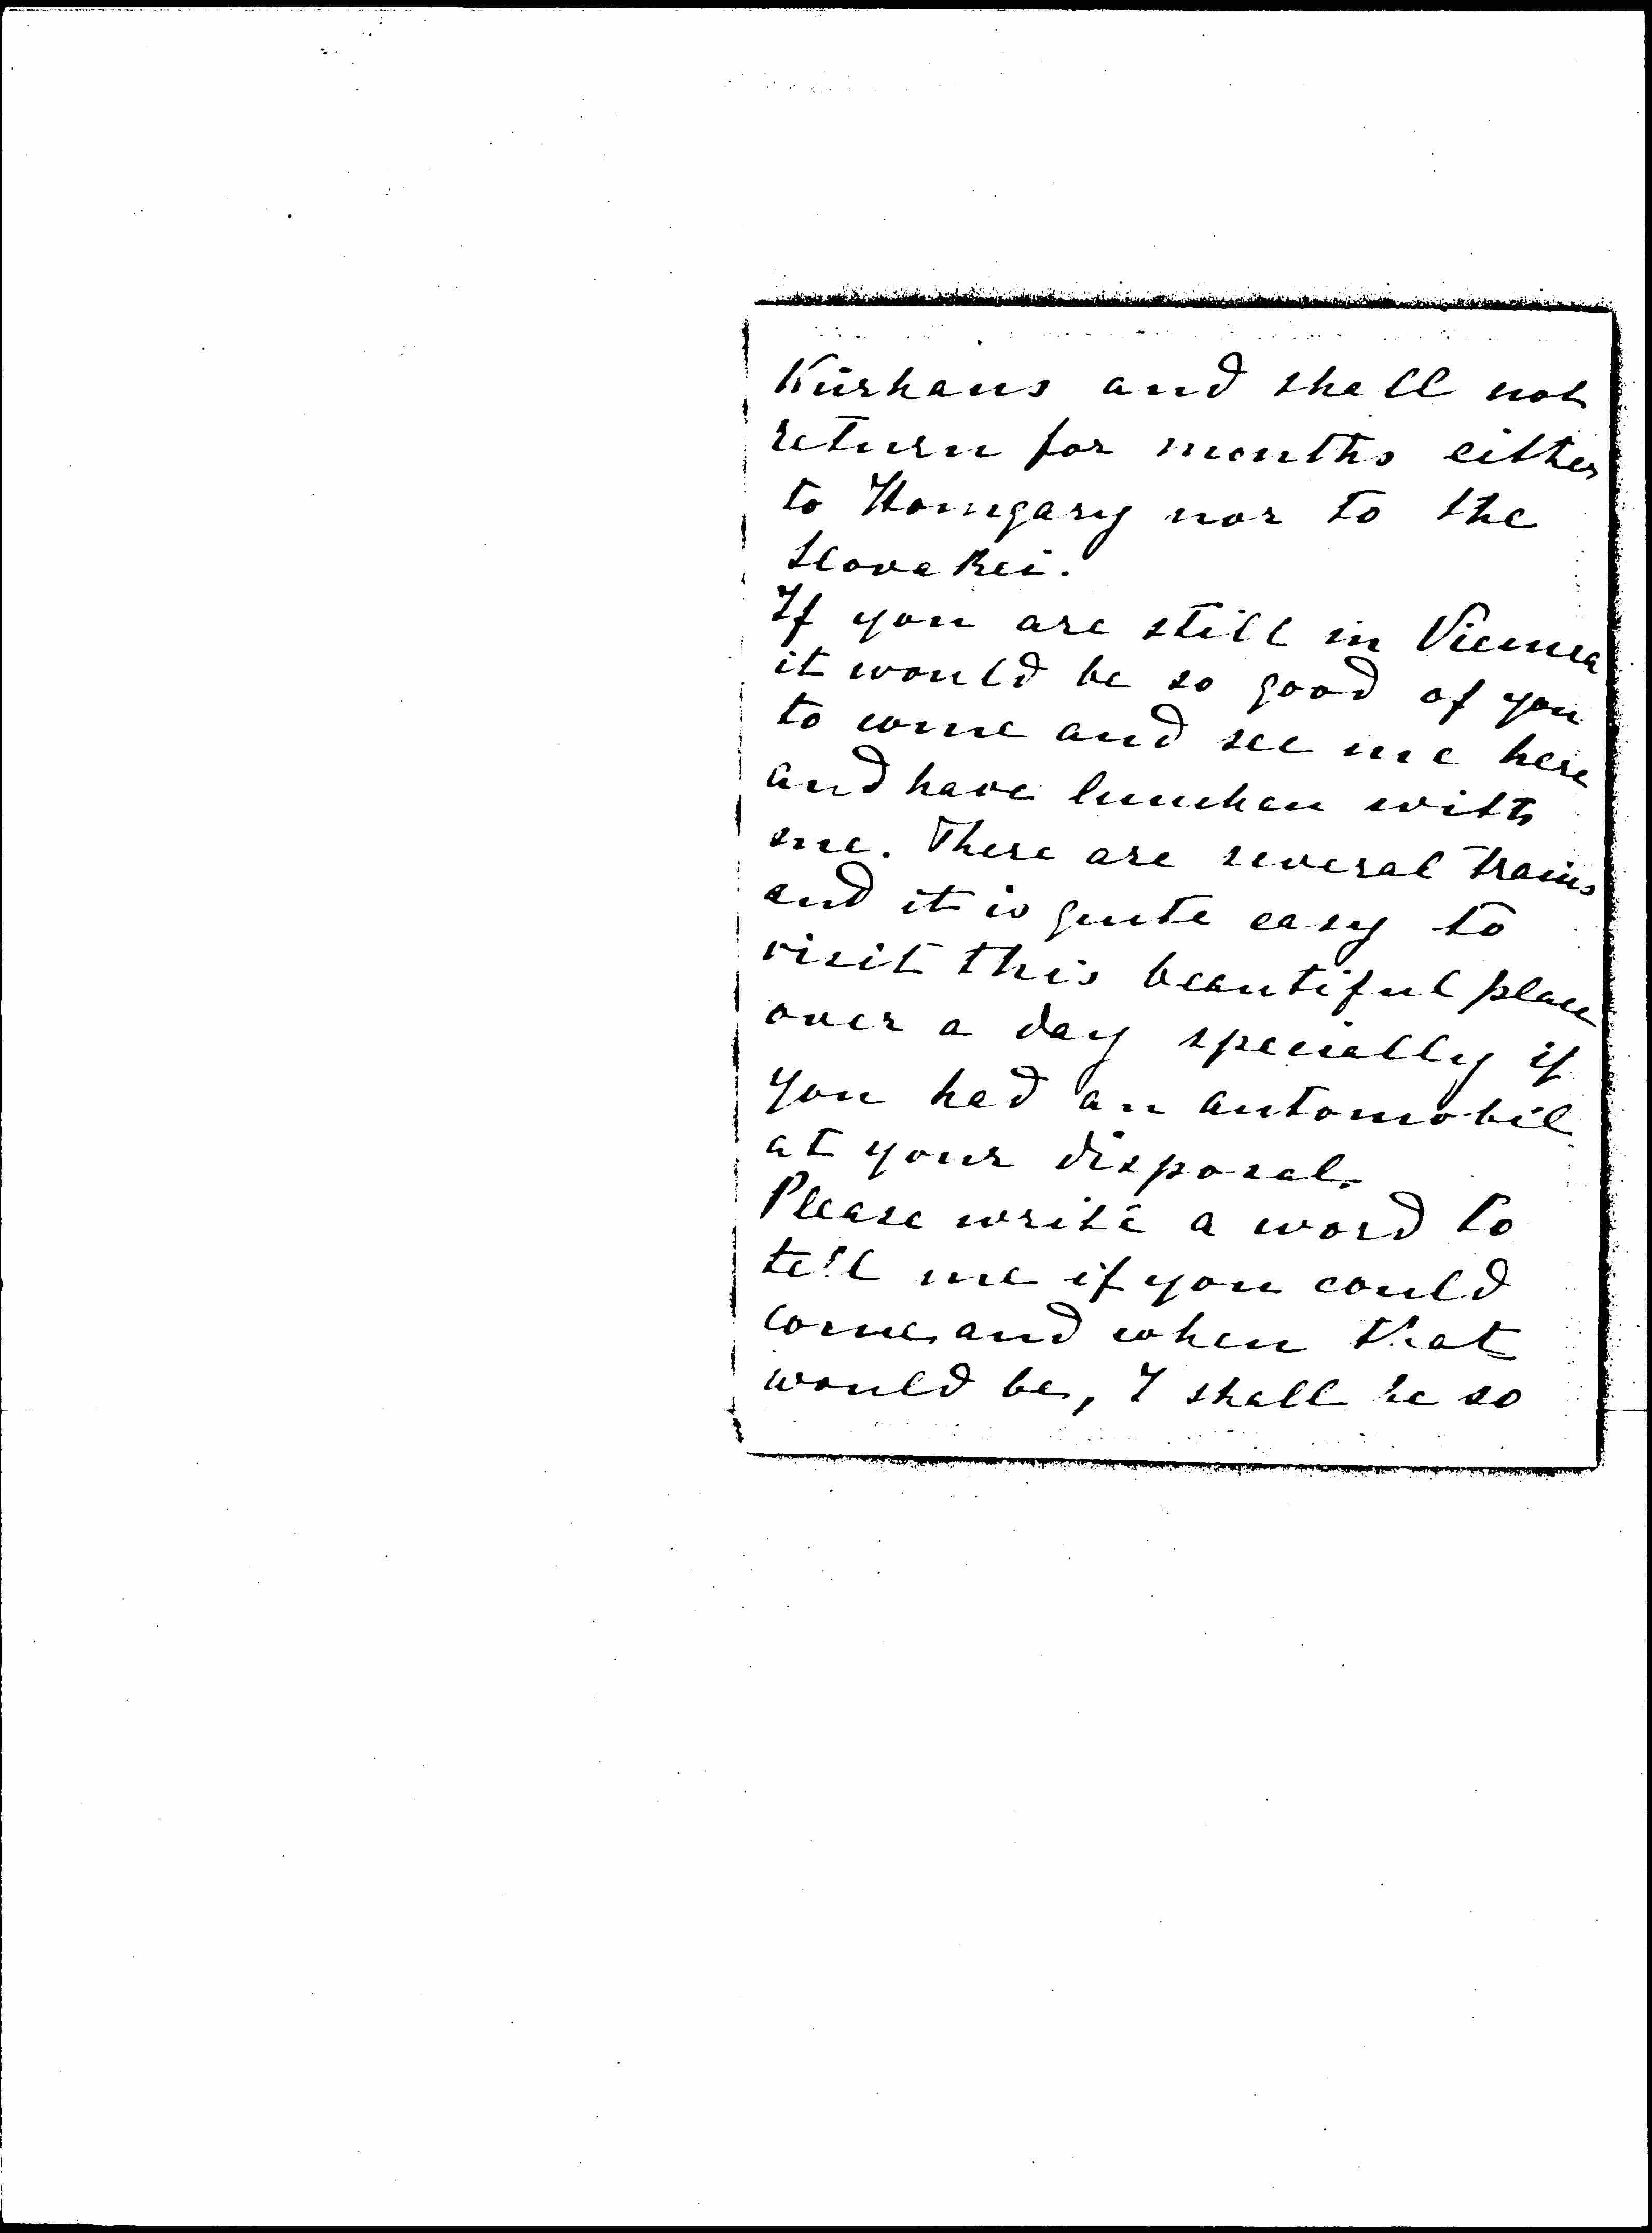 Kurhaus and shall not
return for months either
to Houngary nor to the
Slovakei.
If you are still in Vienna
it would be so good of you
to come and see me here
and have lunchen with
me. There are several trains
and it is quite easy to
visit this beautiful place
over a day specially if
you had an automobil
at your disposal.
Please write a word to
tell me if you could
come and when that
would be, I shall be so